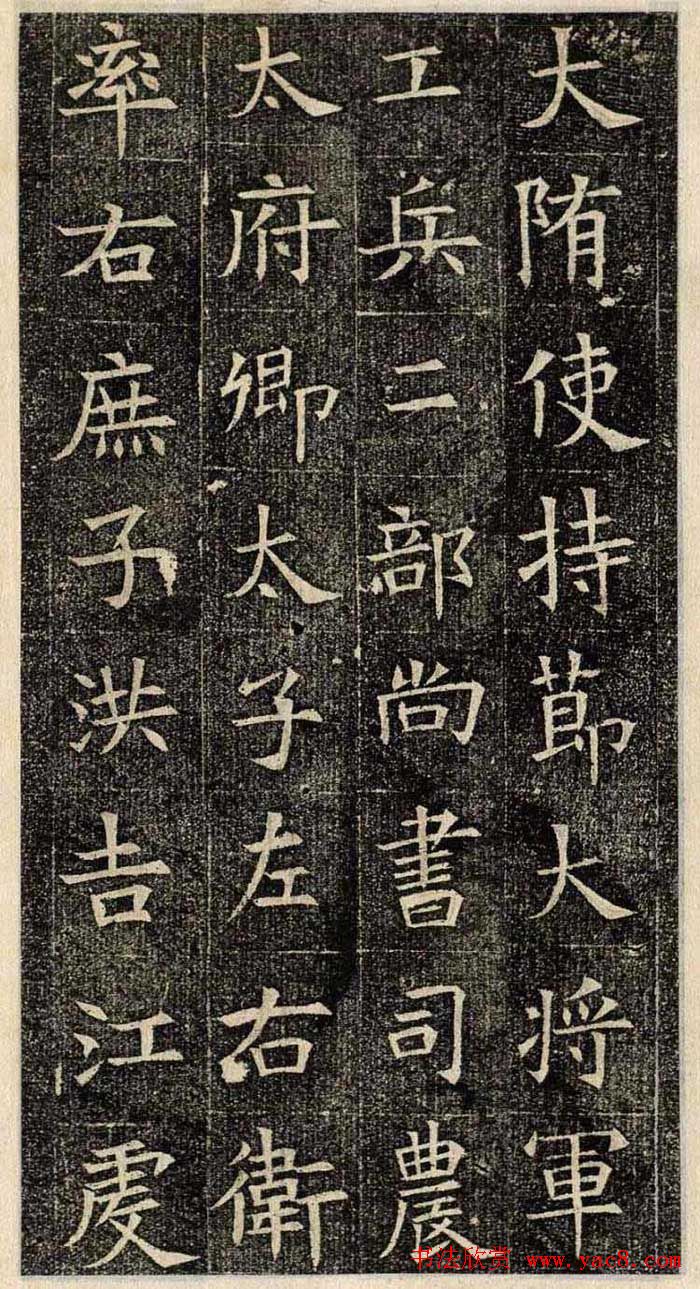 大隋使持節大将軍
工兵二部尚書司農
太府卿太子左右衛
率右庶子洪吉江虔
书法欣赏 www.yac8.com